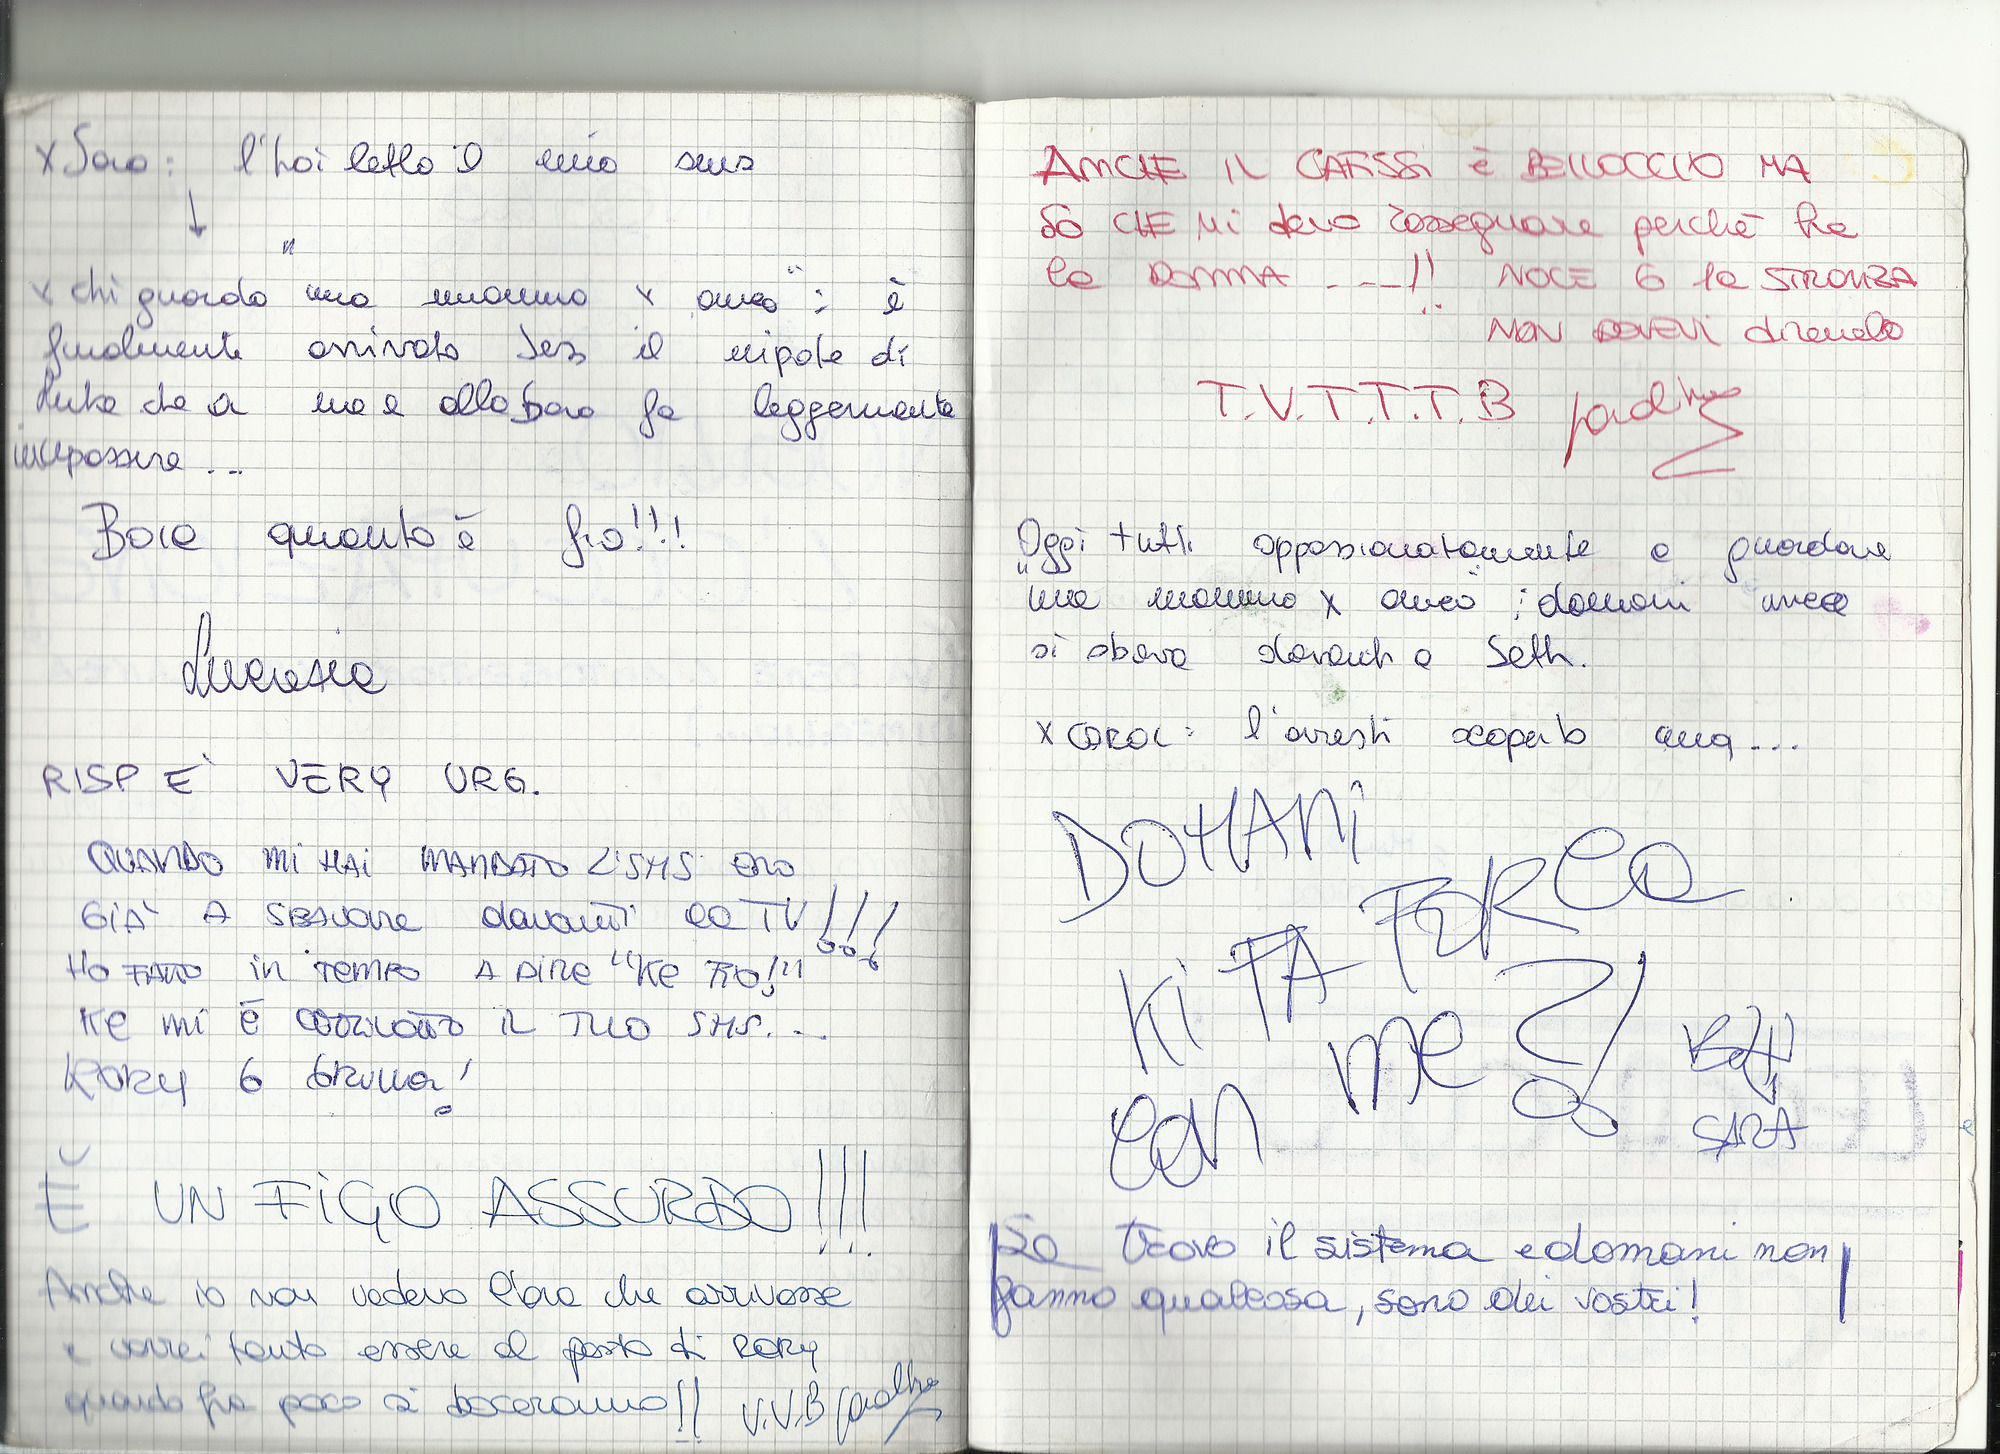 x Sara: l'hai letto il mio sms
x chi guarda "una mamma x amica": è
finalmente arrivato Jess il nipote di
Luke che a me e alla Sara fa leggermente
incepossire...
Boia quanto è fio!!!
Lucrezia
RISP E' VERY URG.
QUANDO mi HAI MANDATO L'SMS ero
GIA' A SBAVARE davanti la TV!!!
HO FATTO in TEMPO A DIRE "KE FIO!!"
KE mi è arrivato IL TUO SMS...
RORY 6 GRULLA!
È UN FIGO ASSURDO!!!
Anche io non vedevo l'ora che arrivasse
e vorrei tanto essere al posto di RORY
quando fra poco si baceranno!! V.V.B
ANCHE IL CAFISSI è BELLOCCIO MA
SO CHE Mi devo rassegnare perchè ha
la DONNA ---!! NOCE 6 la STRONZA
NON DOVEVI dirmelo
T.V.T.T.T.B
Oggi tutti appassionatamente a guardare
"una mamma x amica"; domani invece
si sbava davanti a Seth.
x CAROL: l'avresti scoperto cmq...
DOMANI
Ki FA FORCA
CON ME?!
SARA
Se trovo il sistema e domani non
fanno qualcosa, sono dei vostri!